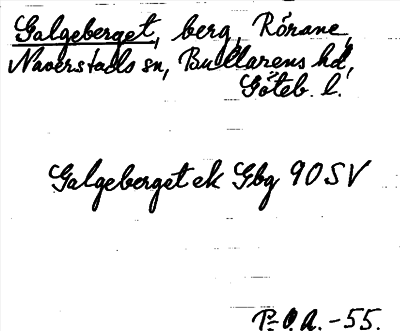 Galgeberget, berg, Rörane,
Naverstads sn, Bullarens hd,
Göteb. l.
Galgeberget ek Gbg 90 SV
P-O.A. -55.